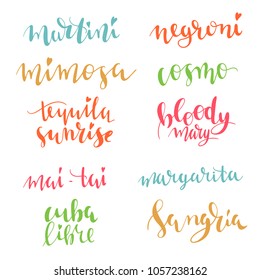 martini
negroni
mimosa
cosmo
tequila
sunrise
bloody
mary
mai-tai
margarita
cuba
libre
Sangria
shutterstock.com · 1057238162